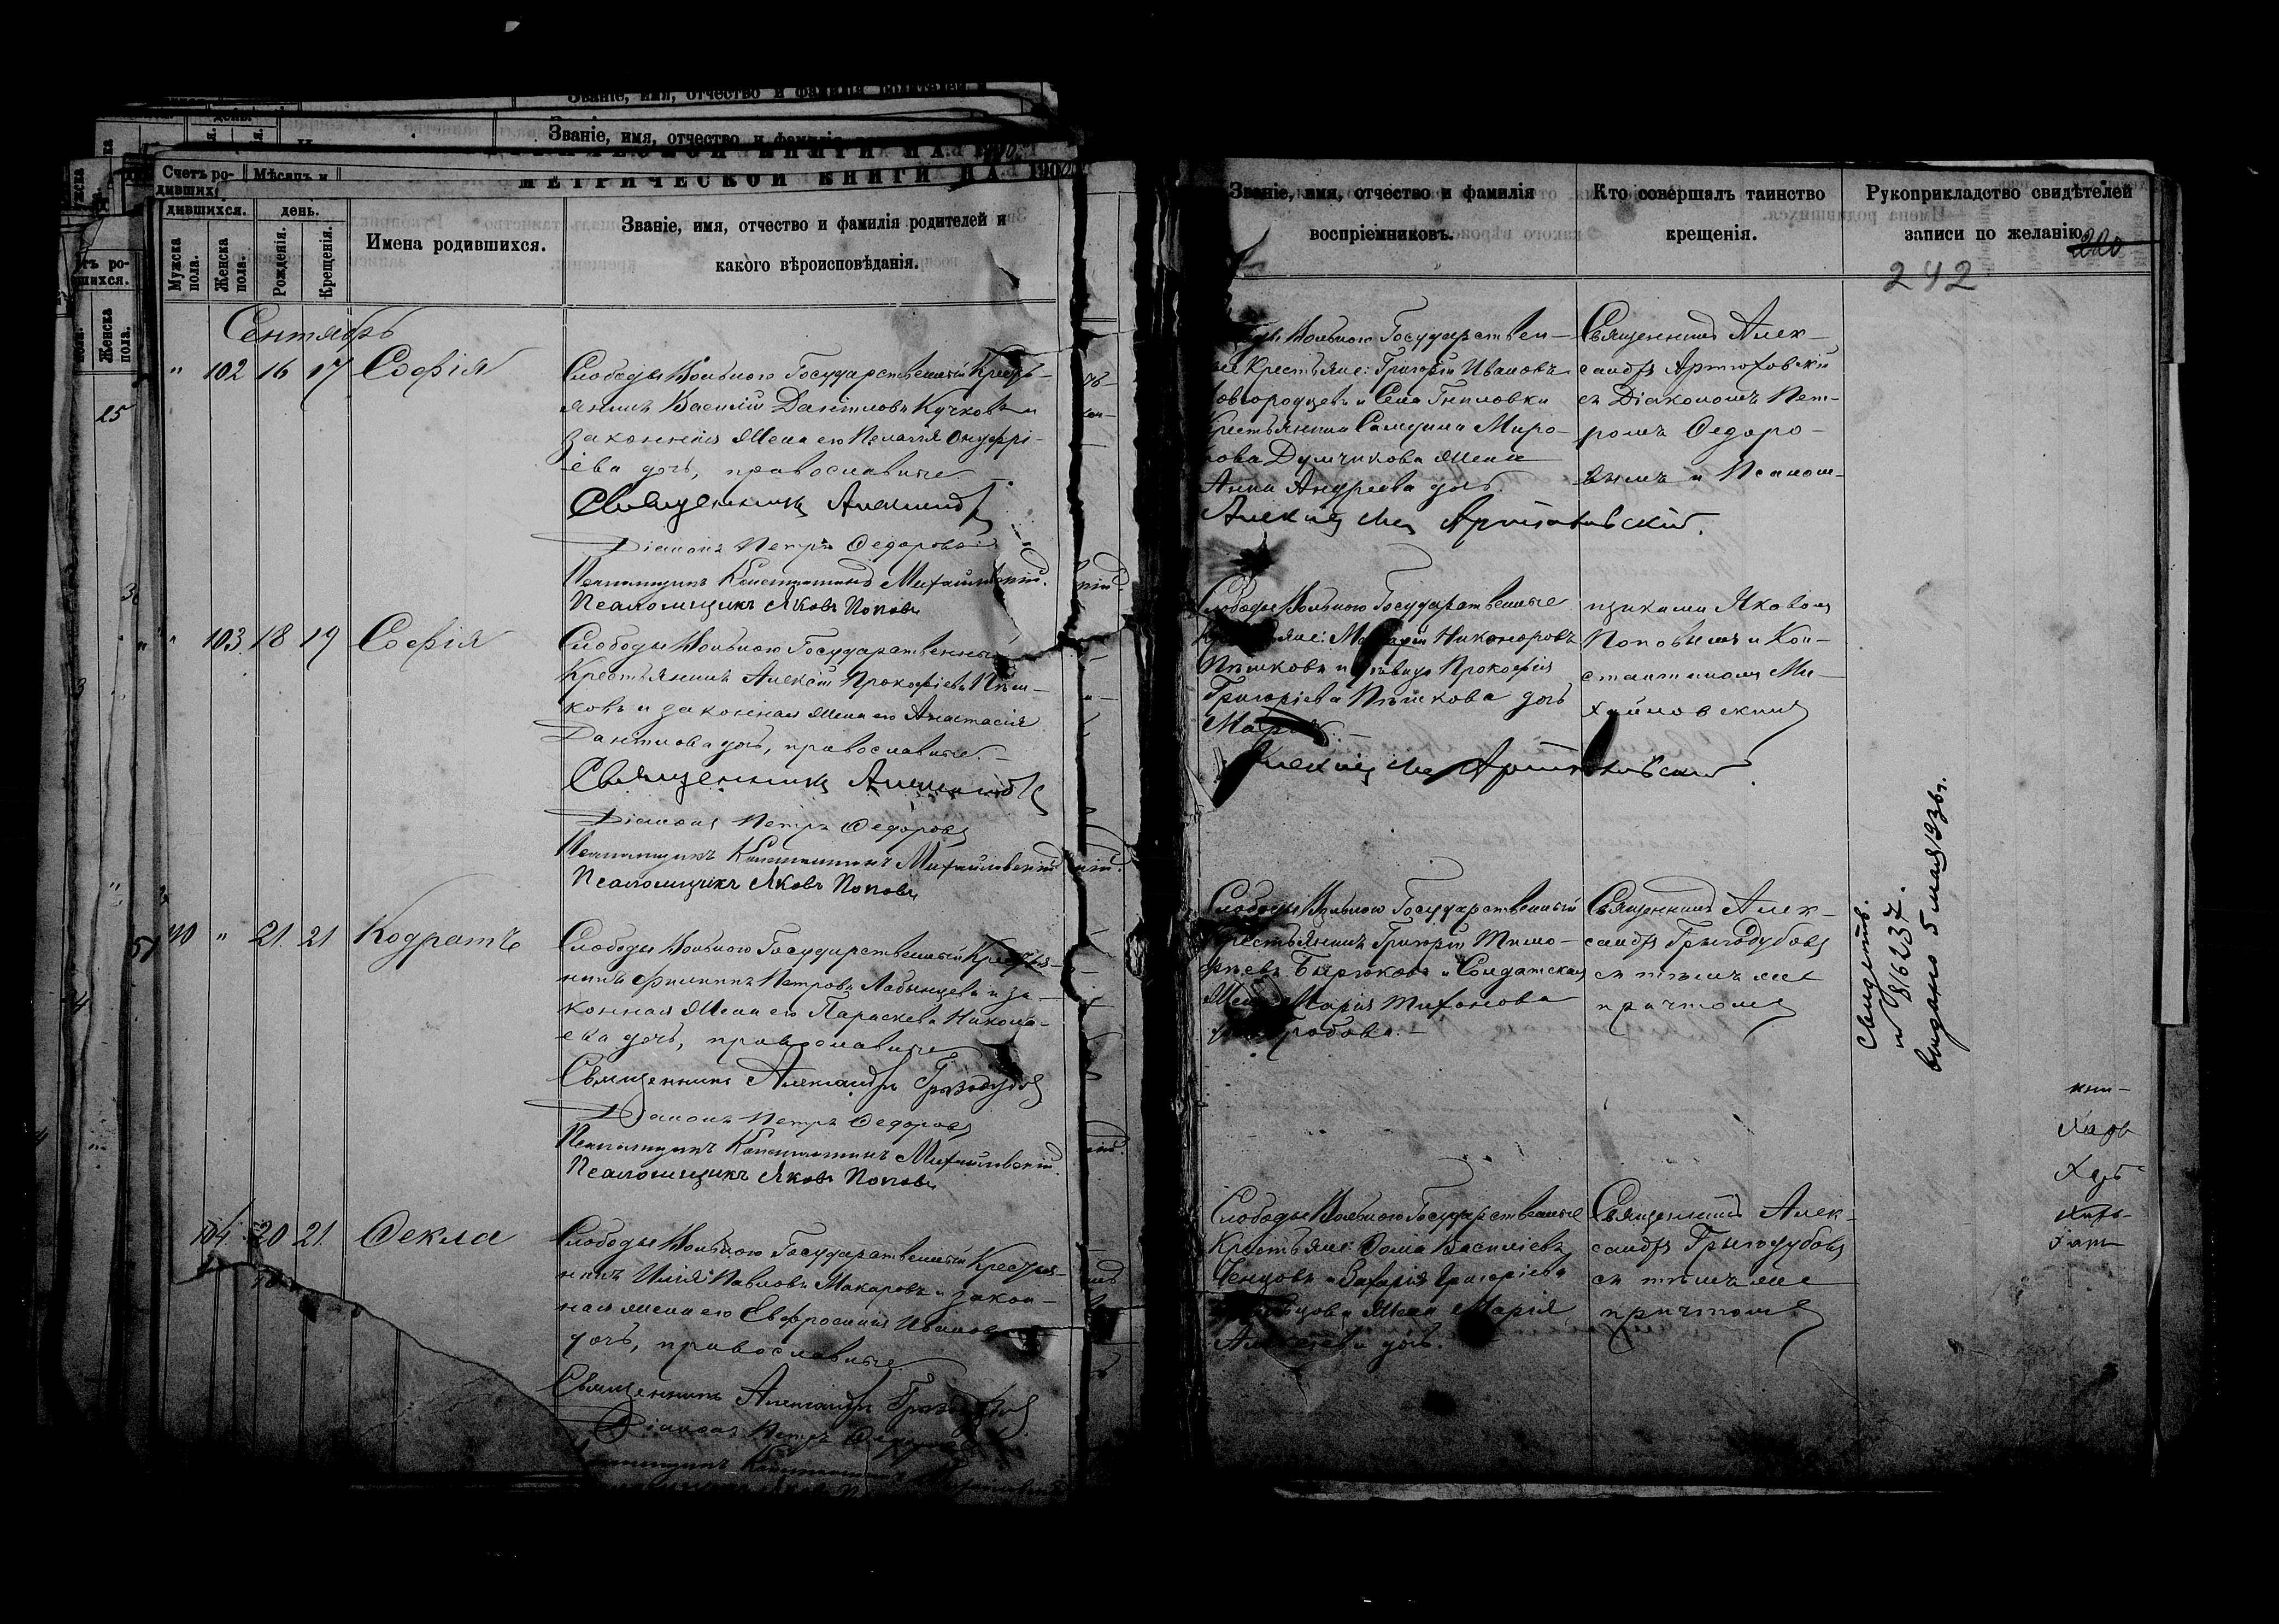 МЕТРИЧЕСКОЙ КНИГИ НА 190
Счетъ родившихся.
Мѣсяцъ и день.
Мужска пола.
Женска пола.
Рожденія.
Крещенія.
Имена родившихся.
Званіе, имя, отчество и фамилія родителей и
какого вѣроисповѣданія.
Сентябрь
" 102 16 17 Софія
Слободы Вольного Государственный Кресть-
янинъ Василій Даніиловъ Кучковъ и
законная жена его Пелагія Онуфрі-
ева дочь, православные.
Священникъ Александръ
Діаконъ Петръ Ѳедоровъ
Псаломщикъ Константинъ Михайловскій.
Псаломщикъ Яковъ Поповъ
" 103 18 19 Софія
Слободы Вольного Государственный
Крестьянинъ Алексій Прокофіевъ Пѣш-
ковъ и законная жена его Анастасія
Даніилова дочь, православные.
Священникъ Александръ
Діаконъ Петръ Ѳедоровъ
Псаломщикъ Константинъ Михайловскій
Псаломщикъ Яковъ Поповъ
110 " 21. 21 Кодратъ
Слободы Вольного Государственный Крестья-
нинъ Филиппъ Петровъ Лабынцевъ и за-
конная жена его Параскева Никола-
ева дочь, православные
Священникъ Александръ Грызодубовъ
Діаконъ Петръ Ѳедоровъ
Псаломщикъ Константинъ Михайловскій.
Псаломщикъ Яковъ Поповъ
104 20 21. Ѳекла
Слободы Вольного Государственный Крестья-
нинъ Илія Павловъ Макаровъ и закон-
ная жена его Евфросинія Иванова
дочь, православные.
Священникъ Александръ Грызодубовъ
Діаконъ Петръ Ѳедоровъ
Званіе, имя, отчество и фамилія
воспріемниковъ.
Кто совершалъ таинство
крещенія.
Рукоприкладство свидѣтелей
записи по желанію.
220
242
Вольного Государствен-
Крестьяне: Григорій Ивановъ
и Села Гниловки
Крестьянина Миро-
жена
Анна Андреева дочь.
Алексѣевъ Артюховскій.
Священникъ Алек-
сандръ Артюховскій
съ Діакономъ Пет-
ромъ Ѳедоро-
вымъ и Псалом-
Слободы Вольного Государственные
Никаноровъ
Пѣшковъ и Прокофія
Григоріева Пѣшкова дочь
Марія.
Артюховскій
щиками Яковомъ
Поповымъ и Кон-
стантиномъ Ми-
хайловскимъ
Слободы Вольного Государственный
Крестьянинъ Григорій Тимо-
феевъ Бирюковъ и Солдатская
жена Марія Тихонова
Священникъ Алек-
сандръ Грызодубовъ
съ тѣмъ же
причтомъ
Свидет.
№ 816237.
выдано 5 мая 1936 г.
Слободы Вольного Государственные
Крестьяне: Ѳома Василіевъ
Ченцовъ и Захарія Григоріева
жена Марія
Алексѣева дочь.
Священникъ Алек-
сандръ Грызодубовъ
съ тѣмъ же
причтомъ